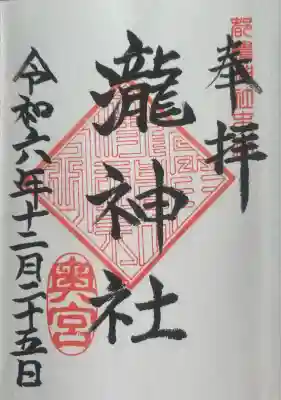 奉拝
瀧神社
奥宮
令和六年十二月二十五日